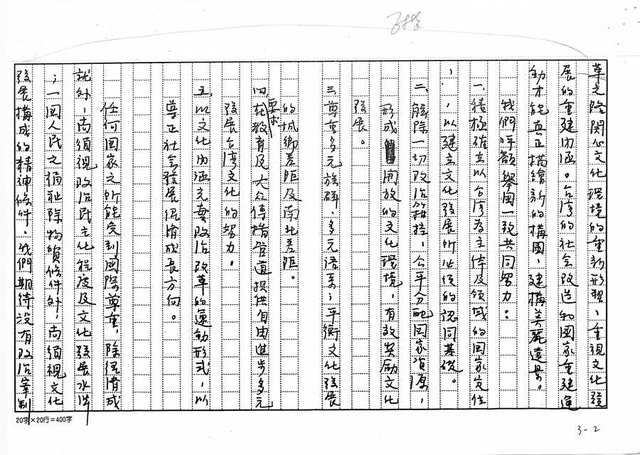 革之際關心文化環境的重新形塑,重視文化發
展的重建內涵。台灣的社會改造和國家重建運
動才能真正描繪新的構圖,建構美麗遠景。
我們呼籲舉國一致共同努力:
一、積極確立以台灣為主體及領域的國家定位
,以建立文化發展所必須的認同基礎。
二、解除一切政治箝控,公平分配國家資源,
形成開放的文化環境,有效獎勵文化
發展。
三、尊重多元族群、多元語系,平衡文化發展
的城鄉差距及南北差距。
四、要求在教育及大眾傳播管道提供自由進步多元
發展台灣文化的努力。
五、以文化內涵充實政治改革的運動形式,以
導正社會發展保障成長方向。
任何國家之所能受到國際尊重,除經濟成
就外,尚須視政治民主化程度及文化發展水準
;一國人民之福祉除物質條件外,尚須視文化
發展構成的精神條件。我們期待沒有政治宰制
20字×20行=400字
3-2